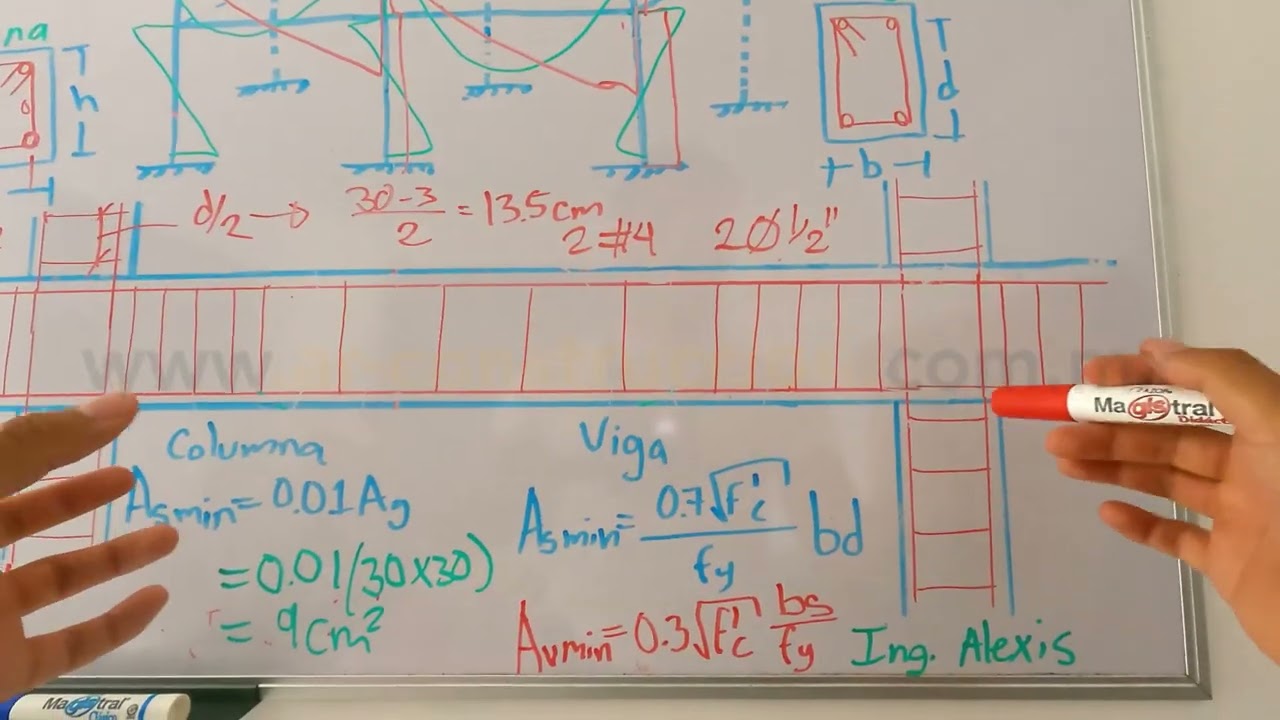 na
h
d
b
d/2 → 30-3/2 = 13.5cm
2#4 2Ø1/2"
Columna
Asmin = 0.01Ag
= 0.01(30x30)
= 9cm²
Viga
Asmin = 0.7√f'c/fy bd
Avmin = 0.3√f'c bs/fy
Ing. Alexis
Magistral
Didáct
Magistral
www.
.com.m